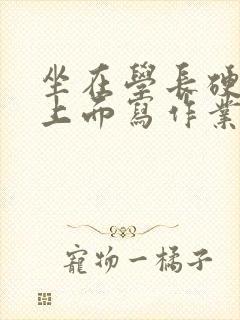 坐在學長硬
上而寫作業
寵物一橘子